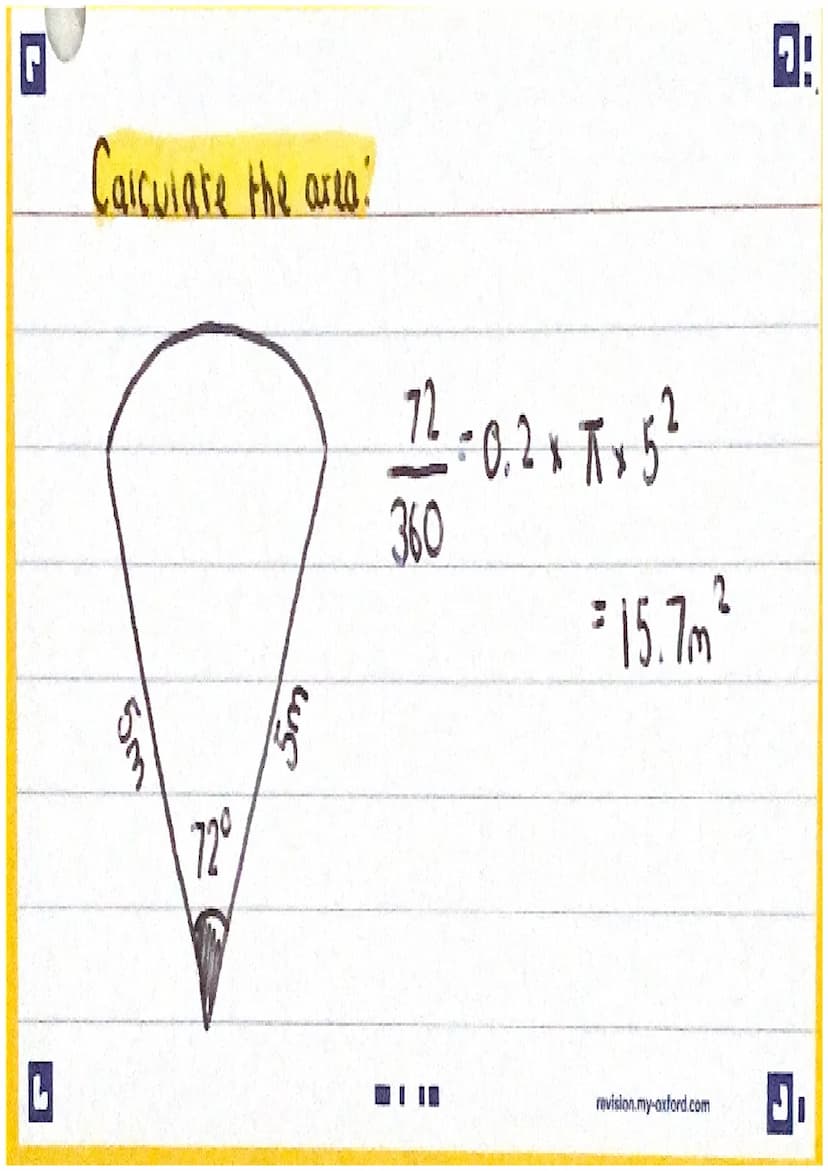 Calculate the area:
72
360
= 0.2 x π x 5²
= 15.7m²
5m
5m
72°
revision.my-oxford.com